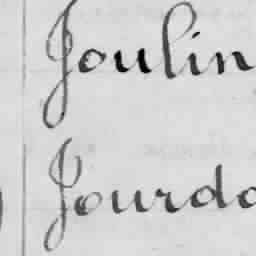 Joulin
Jourdo